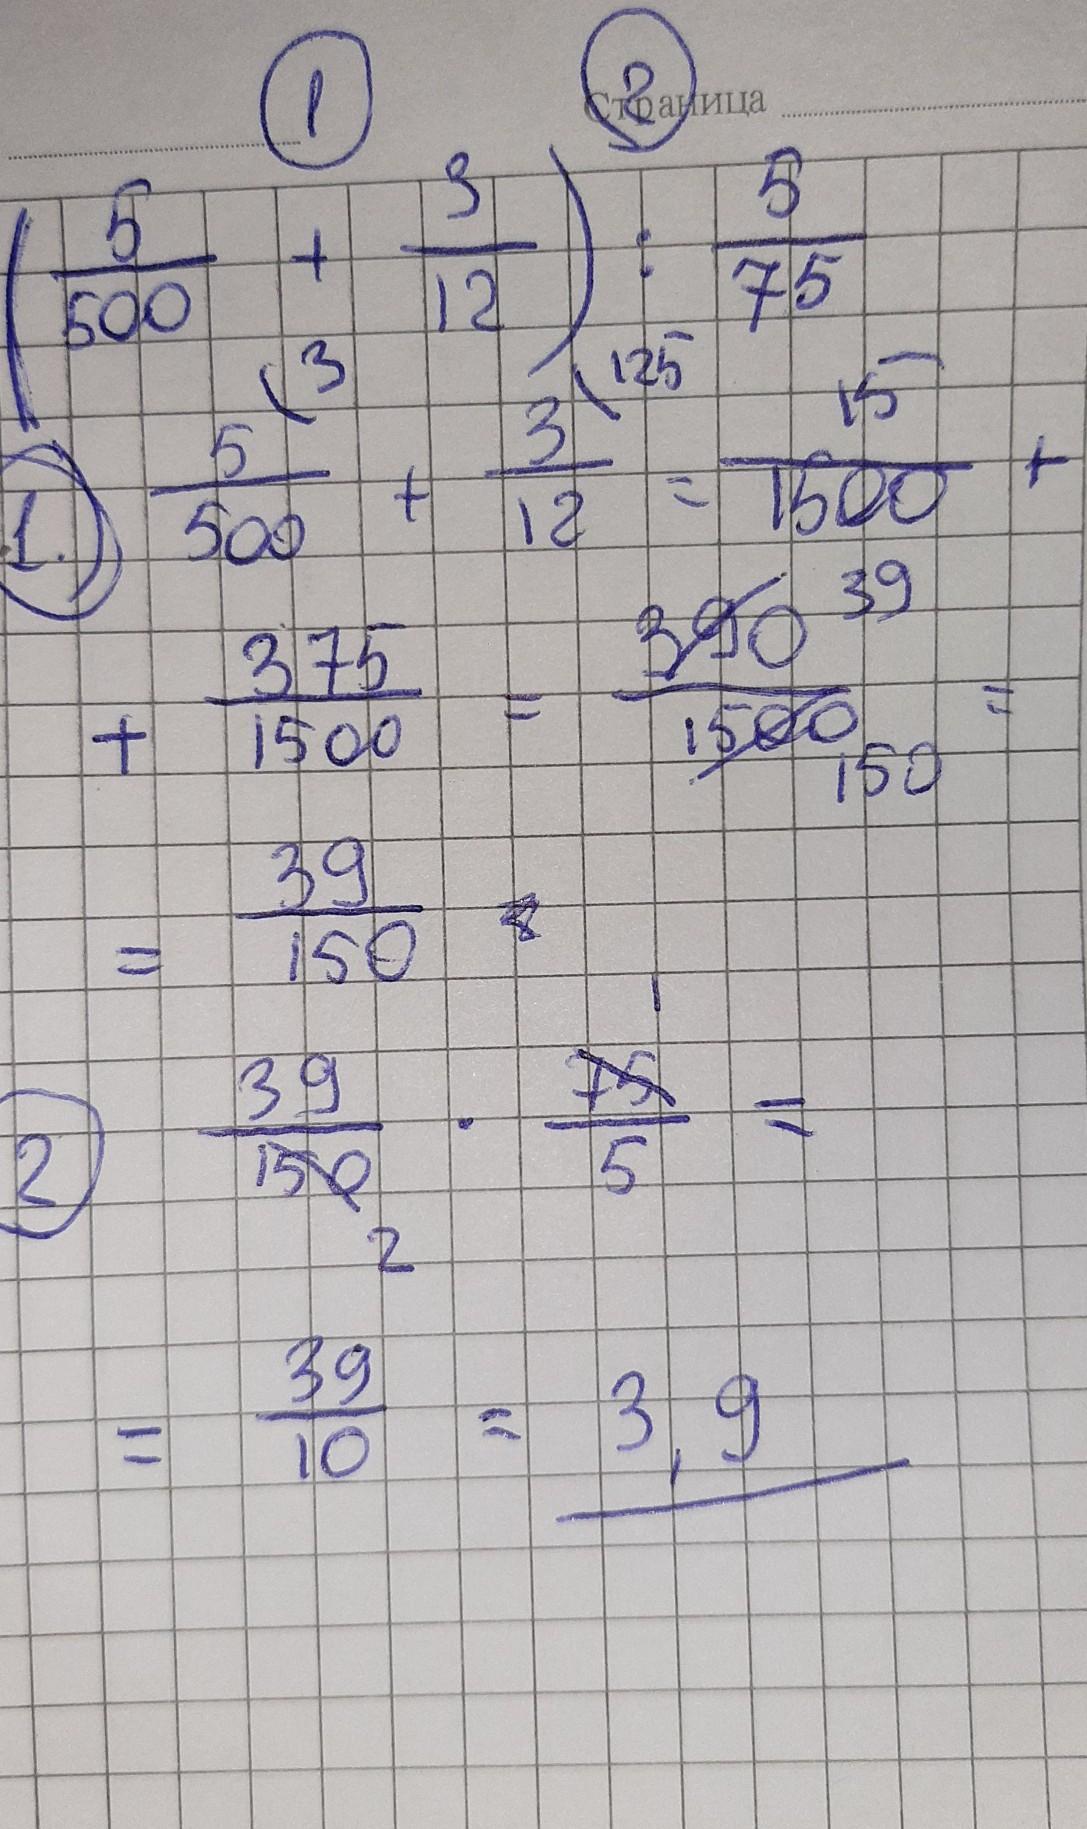 ① ②
Страница
(5/500 + 3/12) : 5/75
1. 5/500 (3 + 3/12 (125 = 15/1500 +
+ 375/1500 = 390/1500 39 150 =
= 39/150
2 39/150 · 75/5 = 1 2
= 39/10 = 3,9